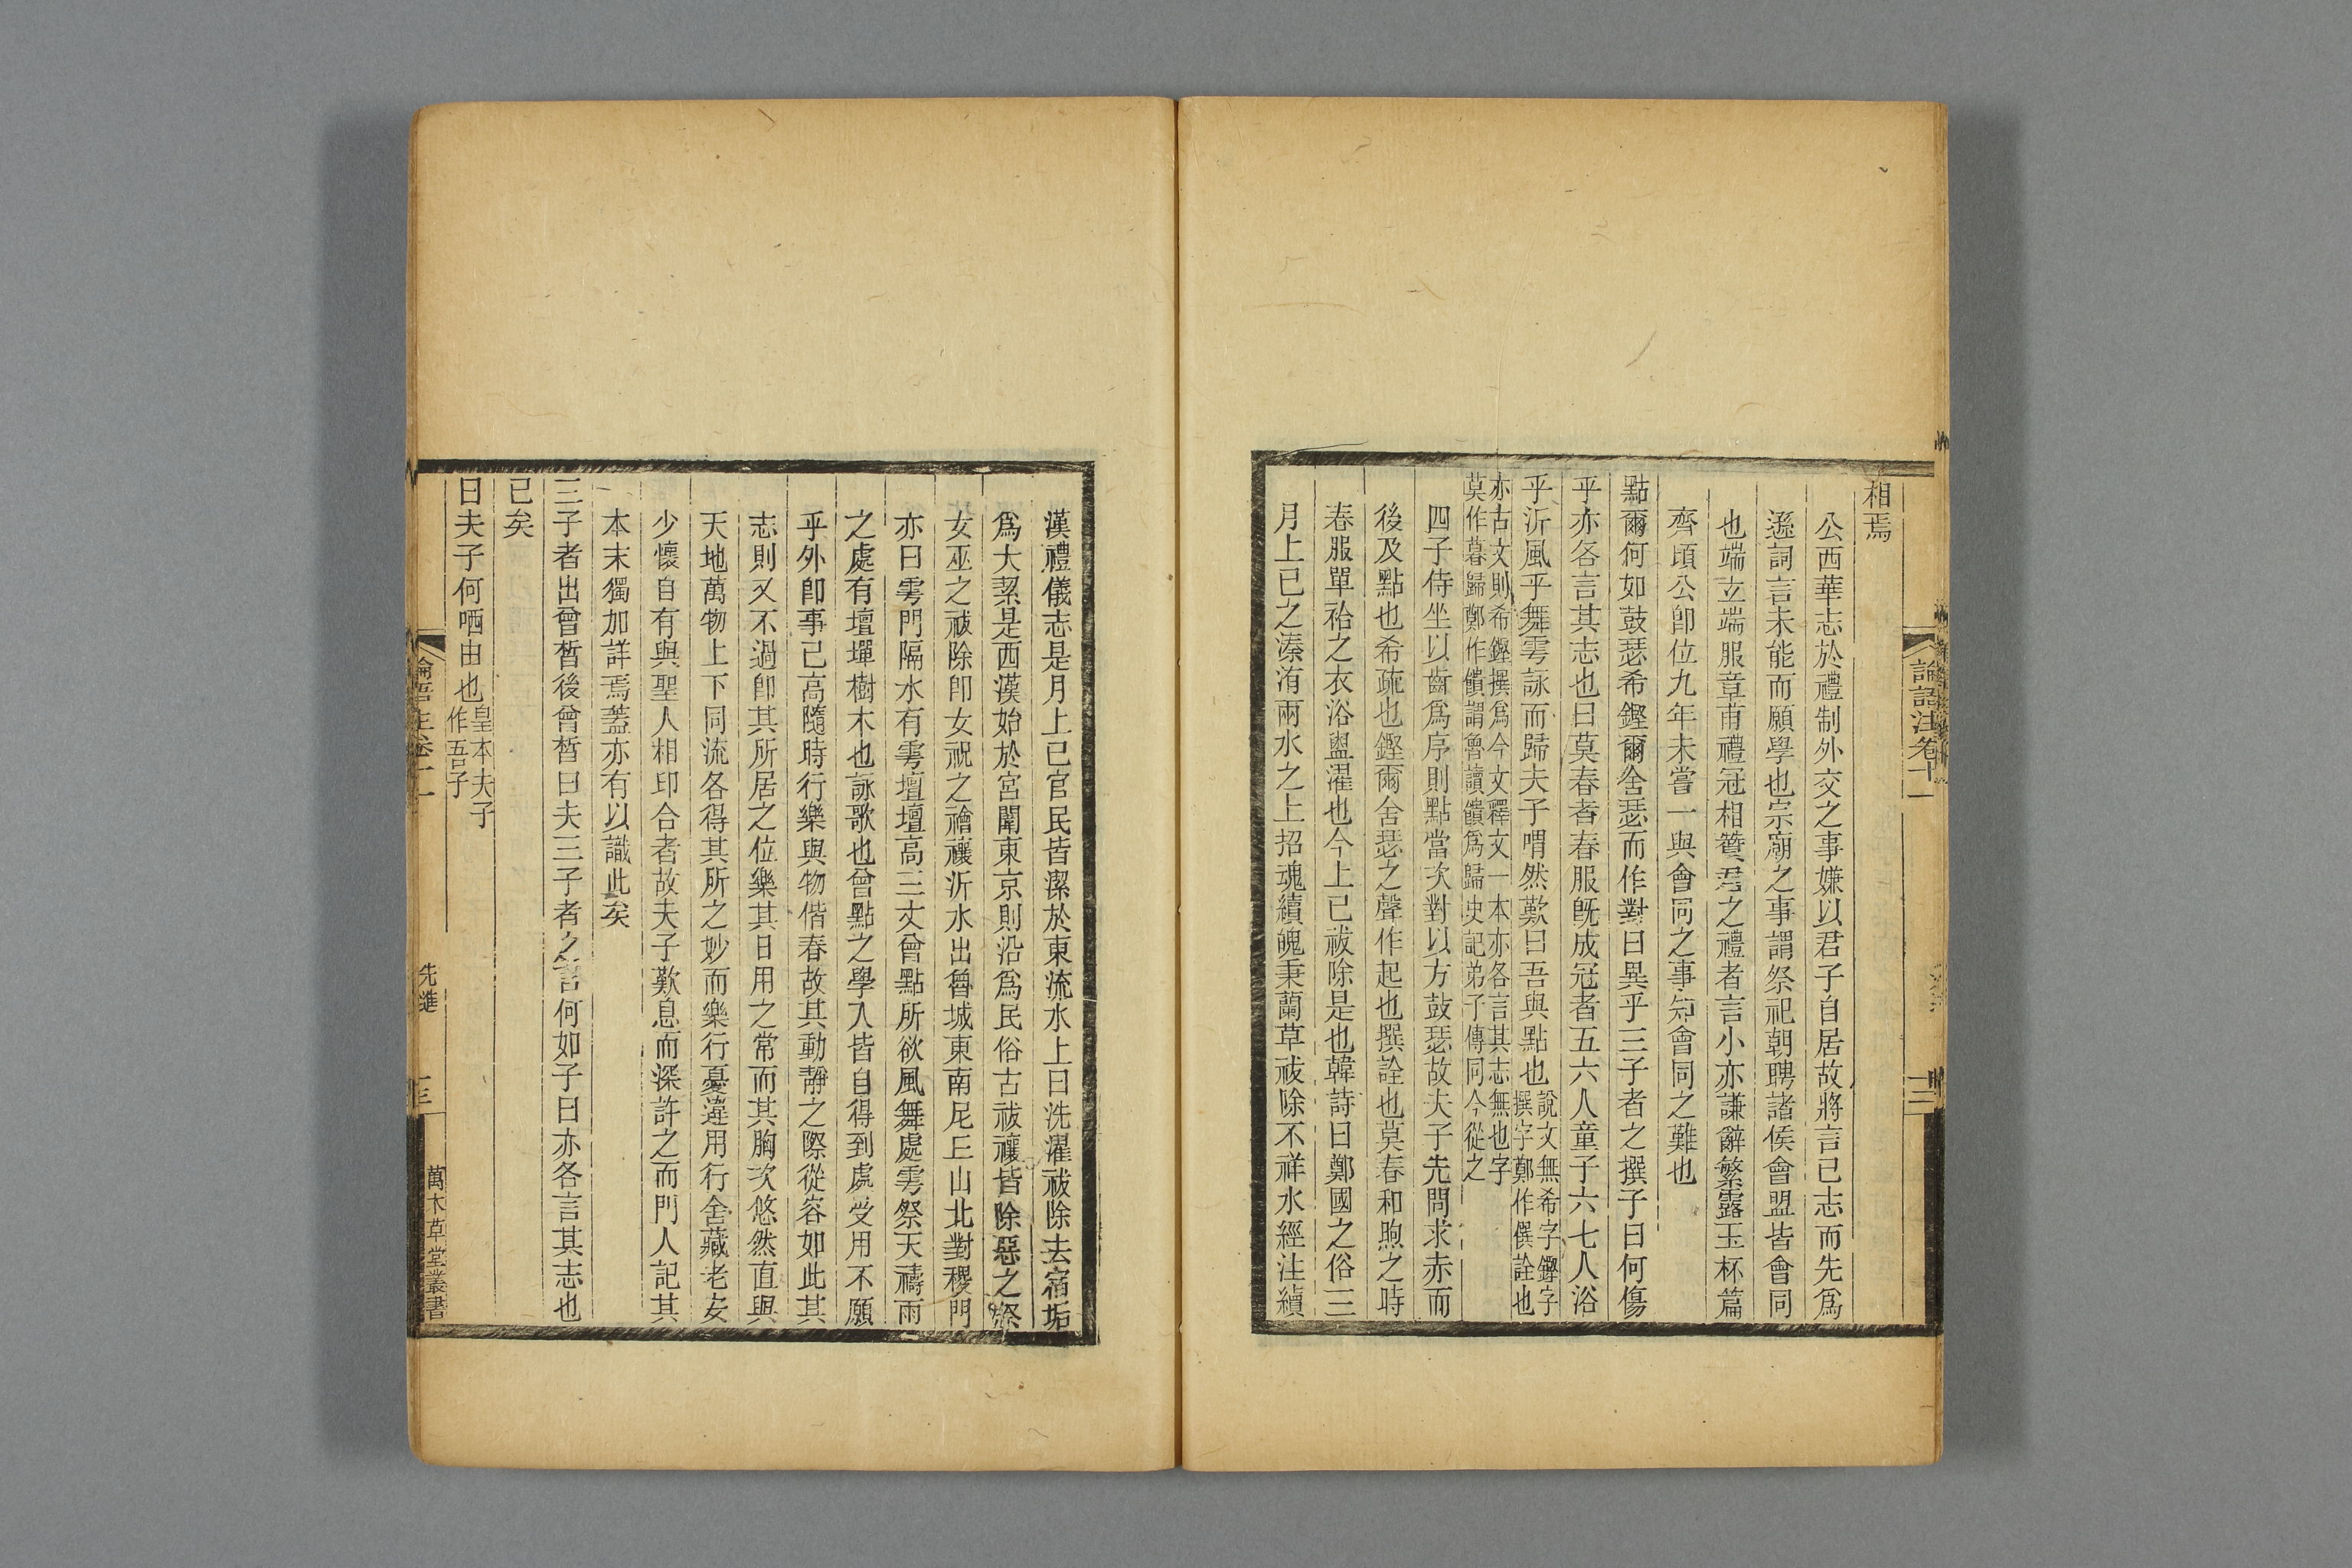 論語注卷十一
十二
相焉
公西華志於禮制外交之事嫌以君子自居故將言己志而先爲
遜詞言未能而願學也宗廟之事謂祭祀朝聘諸侯會盟皆會同
也端立端服章甫禮冠相贊君之禮者言小亦謙辭繁露玉杯篇
齊頃公卽位九年未嘗一與會同之事知會同之難也
點爾何如鼓瑟希鏗爾舍瑟而作對曰異乎三子者之撰子曰何傷
乎亦各言其志也曰莫春者春服旣成冠者五六人童子六七人浴
乎沂風乎舞雩詠而歸夫子喟然歎曰吾與點也
說文無希字鏗字
撰字鄭作僎詮也
亦古文則希鏗撰爲今文釋文一本亦各言其志無也字
莫作暮歸鄭作饋謂魯讀饋爲歸史記弟子傳同今從之
四子侍坐以齒爲序則點當次對以方鼓瑟故夫子先問求赤而
後及點也希疏也鏗爾舍瑟之聲作起也撰詮也莫春和煦之時
春服單袷之衣浴盥濯也今上巳祓除是也韓詩曰鄭國之俗三
月上巳之溱洧兩水之上招魂續魄秉蘭草祓除不祥水經注續
漢禮儀志是月上巳官民皆潔於東流水上曰洗濯祓除去宿垢
爲大絜是西漢始於宮闈東京則沿爲民俗古祓禳皆除惡之祭
女巫之祓除卽女祝之禬禳沂水出魯城東南尼丘山北對稷門
亦曰雩門隔水有雩壇壇高三丈曾點所欲風舞處雩祭天禱雨
之處有壇墠樹木也詠歌也曾點之學入皆自得到處受用不願
乎外卽事已高隨時行樂與物偕春故其動靜之際從容如此其
志則又不過卽其所居之位樂其日用之常而其胸次悠然直與
天地萬物上下同流各得其所之妙而樂行憂違用行舍藏老安
少懷自有與聖人相印合者故夫子歎息而深許之而門人記其
本末獨加詳焉蓋亦有以識此矣
三子者出曾晳後曾晳曰夫三子者之言何如子曰亦各言其志也
已矣
曰夫子何哂由也
皇本夫子
作吾子
論語注卷十一
先進
十三
萬木草堂叢書